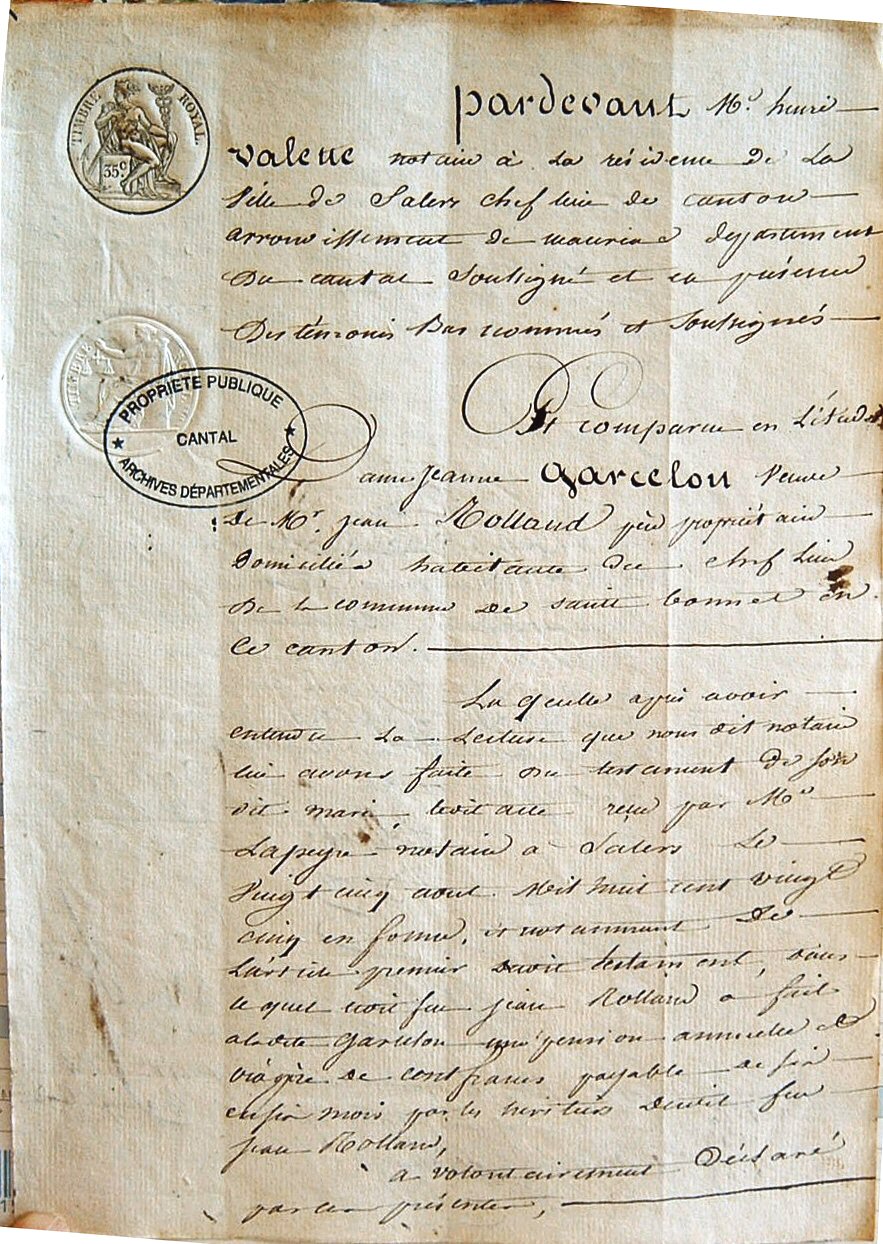 TIMBRE ROYAL.
35c
TIMBRE
PROPRIETE PUBLIQUE
CANTAL
ARCHIVES DÉPARTEMENTALES
pardevant Me. henri
Valette notaire à La résidence De La
Ville de Salers chef lieu de canton
arrondissement de mauriac departement
Du cantal Soussigné et en présence
Des témoins Bas nommés et Soussignés
Est comparue en L'étude
Dame Jeanne Garcelon Veuve
de Mr. jean Rolland père propriétaire
Domiciliée habitante du chef Lieu
De la commune de saint bonnet en
Ce canton.
La quelle après avoir
entendu La Lecture que nous dit notaire
lui avons faite du testament de son
dit mari ledit acte reçu par Me
Lapeyre notaire à Salers Le
Vingt cinq aout Mil huit cent vingt
cinq en forme, et notamment De
L'article premier dudit testament, dans
le quel ledit feu jean Rolland a fait
a ladite Garcelon une pension annuelle et
viagère de cent francs payable de six
en six mois par les héritiers dudit feu
jean Rolland,
a volontairement Déclaré
par ces présentes,